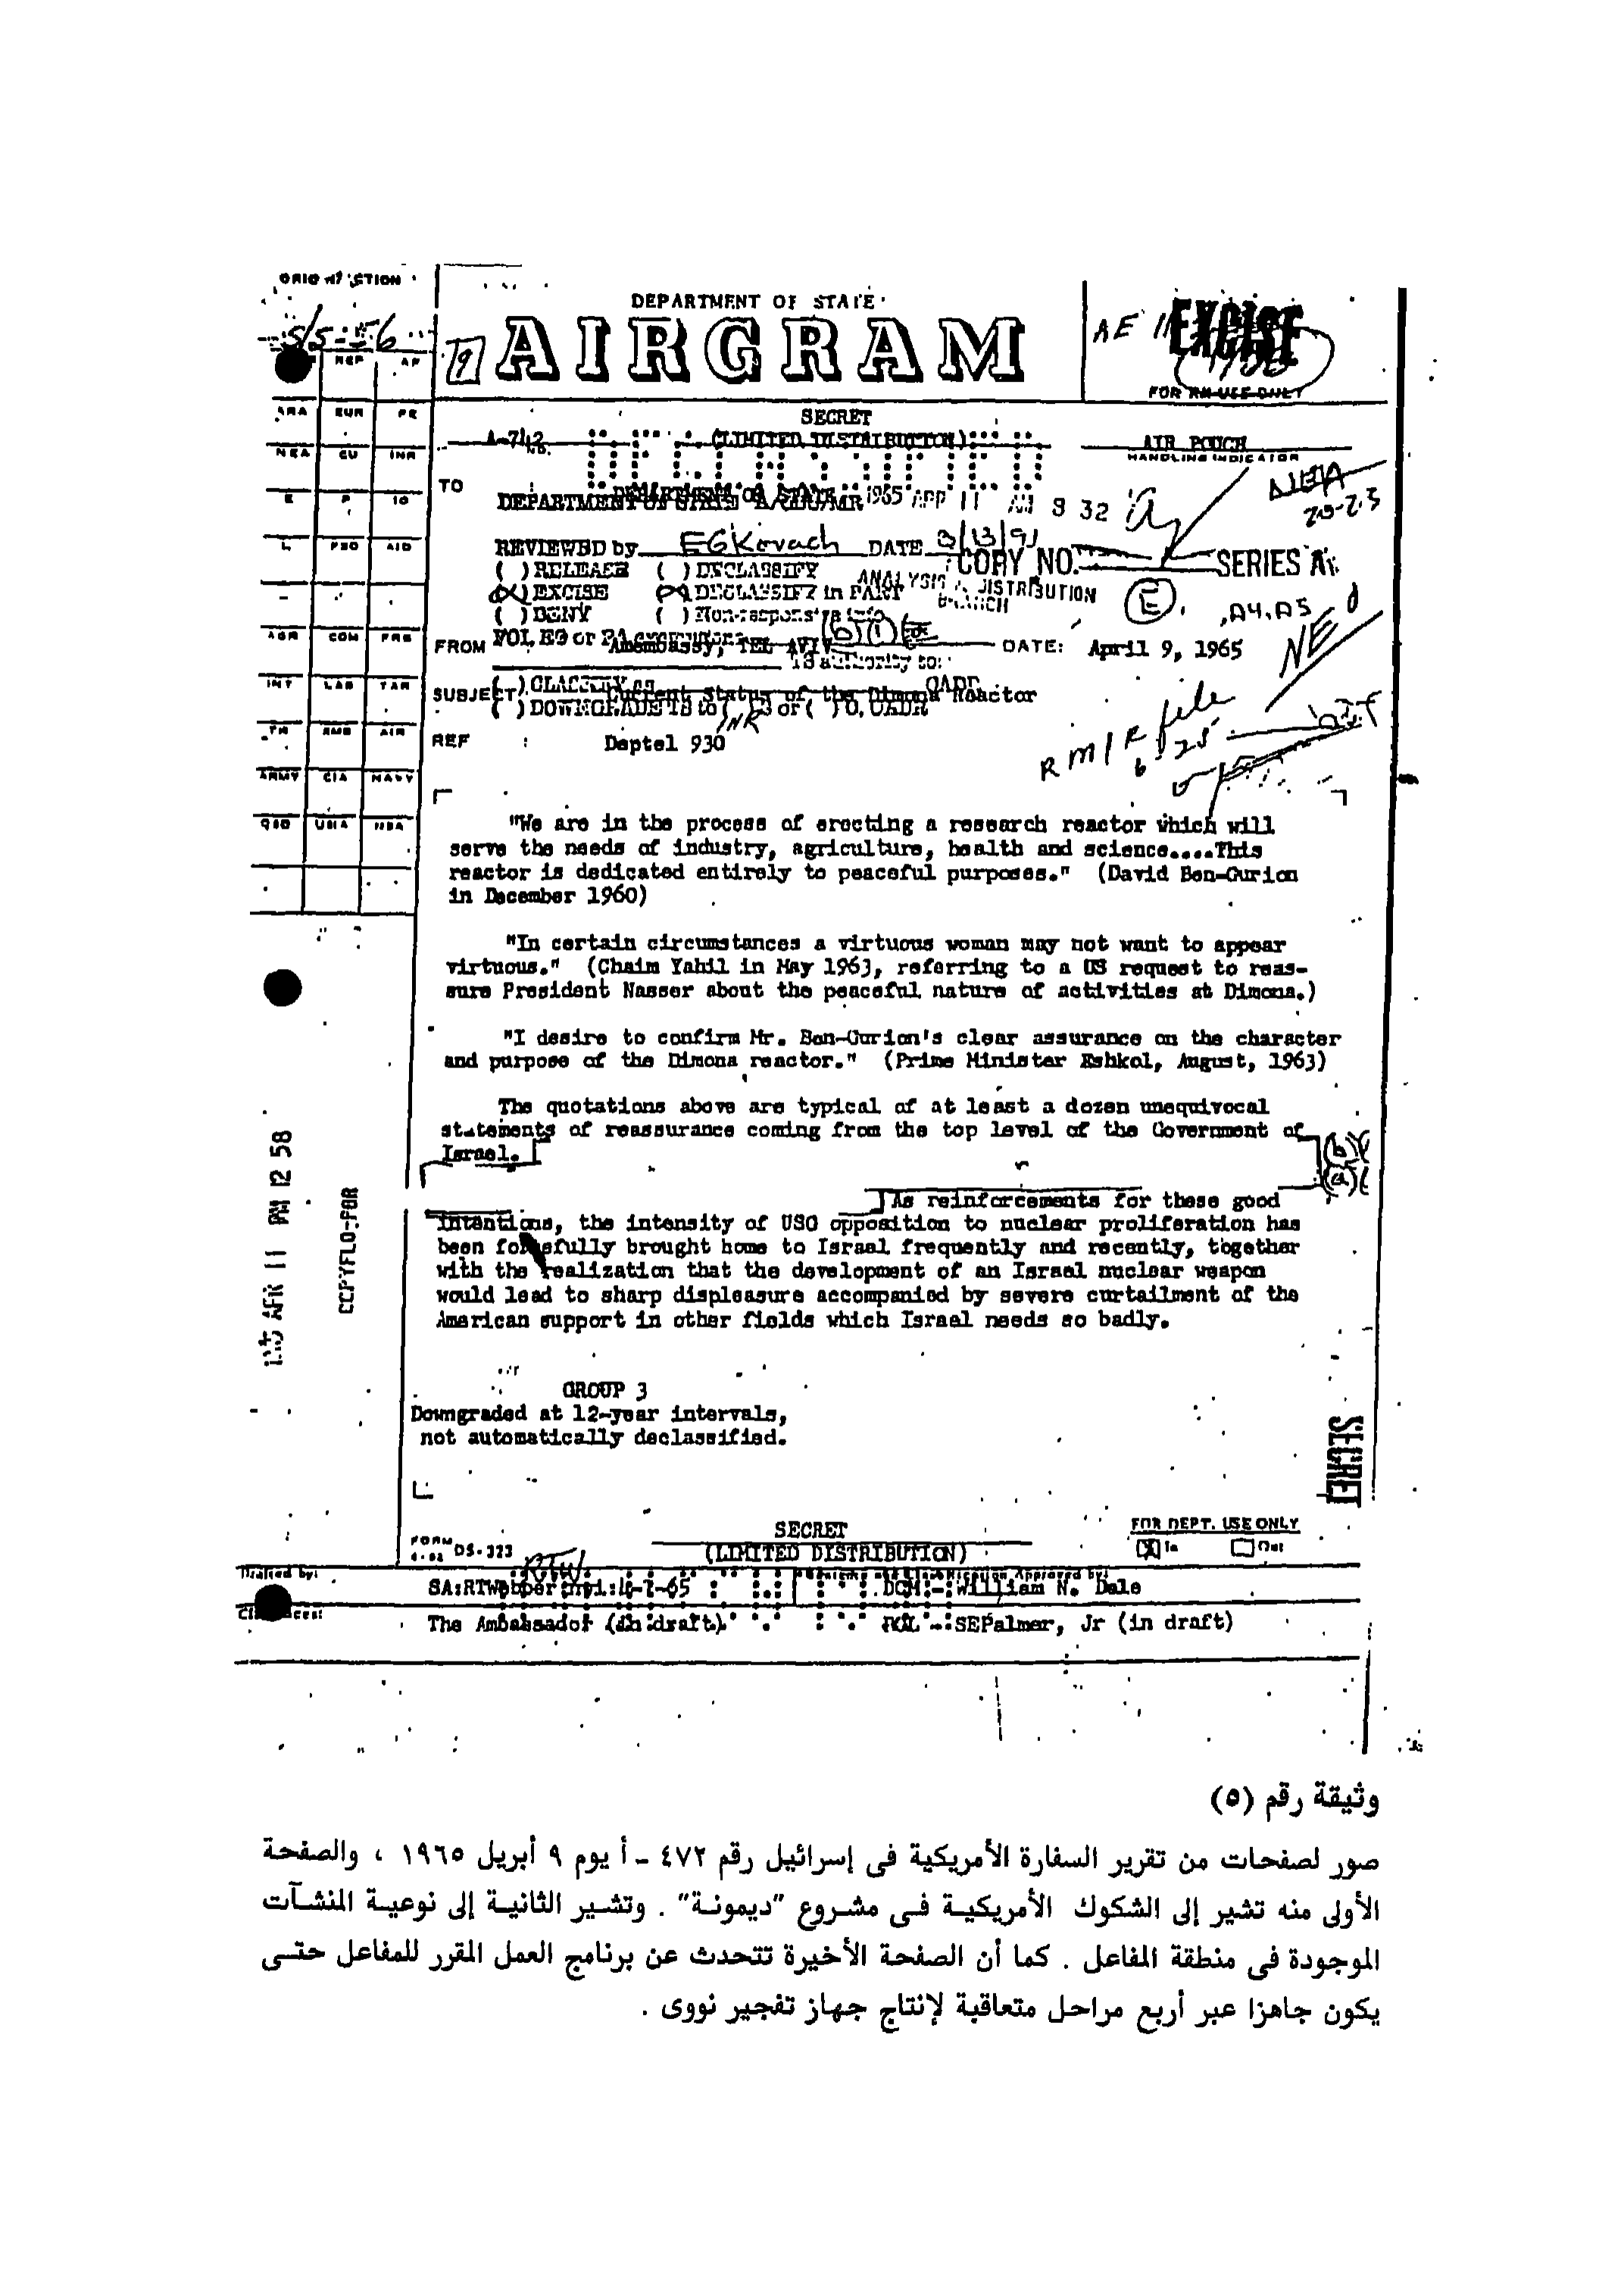 DEPARTMENT OF STATE
AIRGRAM
EXCISE
FOR RM USE ONLY
REP AF
ARA EUR FE
NEA CU INR
E P IO
L FBO AID
AGR COM FRB
INT LAB TAR
TR XMB AIR
ARMY CIA NAVY
OSD USIA NSA
SECRET
A-742
NO.
(LIMITED DISTRIBUTION)
AIR POUCH
HANDLING INDICATOR
TO
DEPARTMENT OF STATE
1965 APR 11 8 32
NEA
REVIEWED by EGKovach DATE 3/13/91
COPY NO. SERIES A
( ) RELEASE ( ) DECLASSIFY
(X) EXCISE (X) DECLASSIFY in PART
ANALYSIS & DISTRIBUTION
BRANCH
( ) DENY ( ) Non-responsive info.
E
,A4,A5
FROM Amembassy, TEL AVIV DATE: April 9, 1965
IS authority to:
( ) CLASSIFY as OADR
SUBJECT: Current Status of the Dimona Reactor
( ) DOWNGRADE TS to ( ) S or ( ) C, OADR
REF : Deptel 930
RM/R file
"We are in the process of erecting a research reactor which will
serve the needs of industry, agriculture, health and science....This
reactor is dedicated entirely to peaceful purposes." (David Ben-Gurion
in December 1960)
"In certain circumstances a virtuous woman may not want to appear
virtuous." (Chaim Yahil in May 1963, referring to a US request to reas-
sure President Nasser about the peaceful nature of activities at Dimona.)
"I desire to confirm Mr. Ben-Gurion's clear assurance on the character
and purpose of the Dimona reactor." (Prime Minister Eshkol, August, 1963)
The quotations above are typical of at least a dozen unequivocal
statements of reassurance coming from the top level of the Government of
Israel.
As reinforcements for these good
intentions, the intensity of USG opposition to nuclear proliferation has
been forcefully brought home to Israel frequently and recently, together
with the realization that the development of an Israel nuclear weapon
would lead to sharp displeasure accompanied by severe curtailment of the
American support in other fields which Israel needs so badly.
APR 11 PM 12 58
COPYFLO-PBR
GROUP 3
Downgraded at 12-year intervals,
not automatically declassified.
SECRET
SECRET
(LIMITED DISTRIBUTION)
FOR DEPT. USE ONLY
In Out
FORM DS-323
Drafted by:
SA:RTWebber:mpi:4-7-65 DCM - William N. Dale
Clearances:
The Ambassador (in draft) POL - SEPalmer, Jr (in draft)
وثيقة رقم (٥)
صور لصفحات من تقرير السفارة الأمريكية فى إسرائيل رقم ٤٧٢ - أ يوم ٩ أبريل ١٩٦٥ ، والصفحة
الأولى منه تشير إلى الشكوك الأمريكية فى مشروع "ديمونة" . وتشير الثانية إلى نوعية المنشآت
الموجودة فى منطقة المفاعل . كما أن الصفحة الأخيرة تتحدث عن برنامج العمل المقرر للمفاعل حتى
يكون جاهزا عبر أربع مراحل متعاقبة لإنتاج جهاز تفجير نووى .